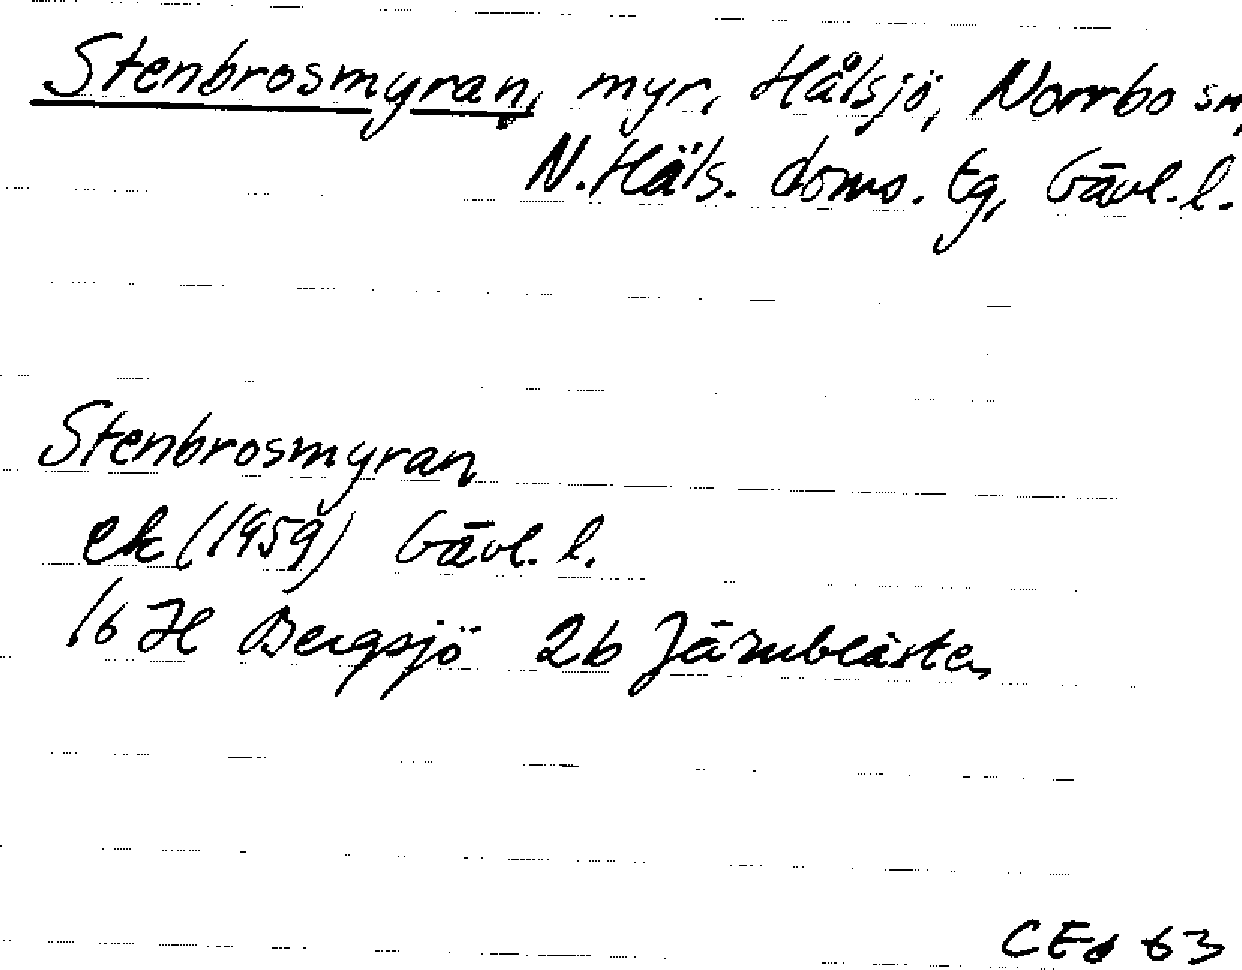 Stenbrosmyran, myr, Hålsjö, Norrbo sn,
N. Häls. doms. tg, Gävl. l.
Stenbrosmyran
ek (1959) Gävl. l.
16 H Bergsjö 2b Järnblästen
CEd 63